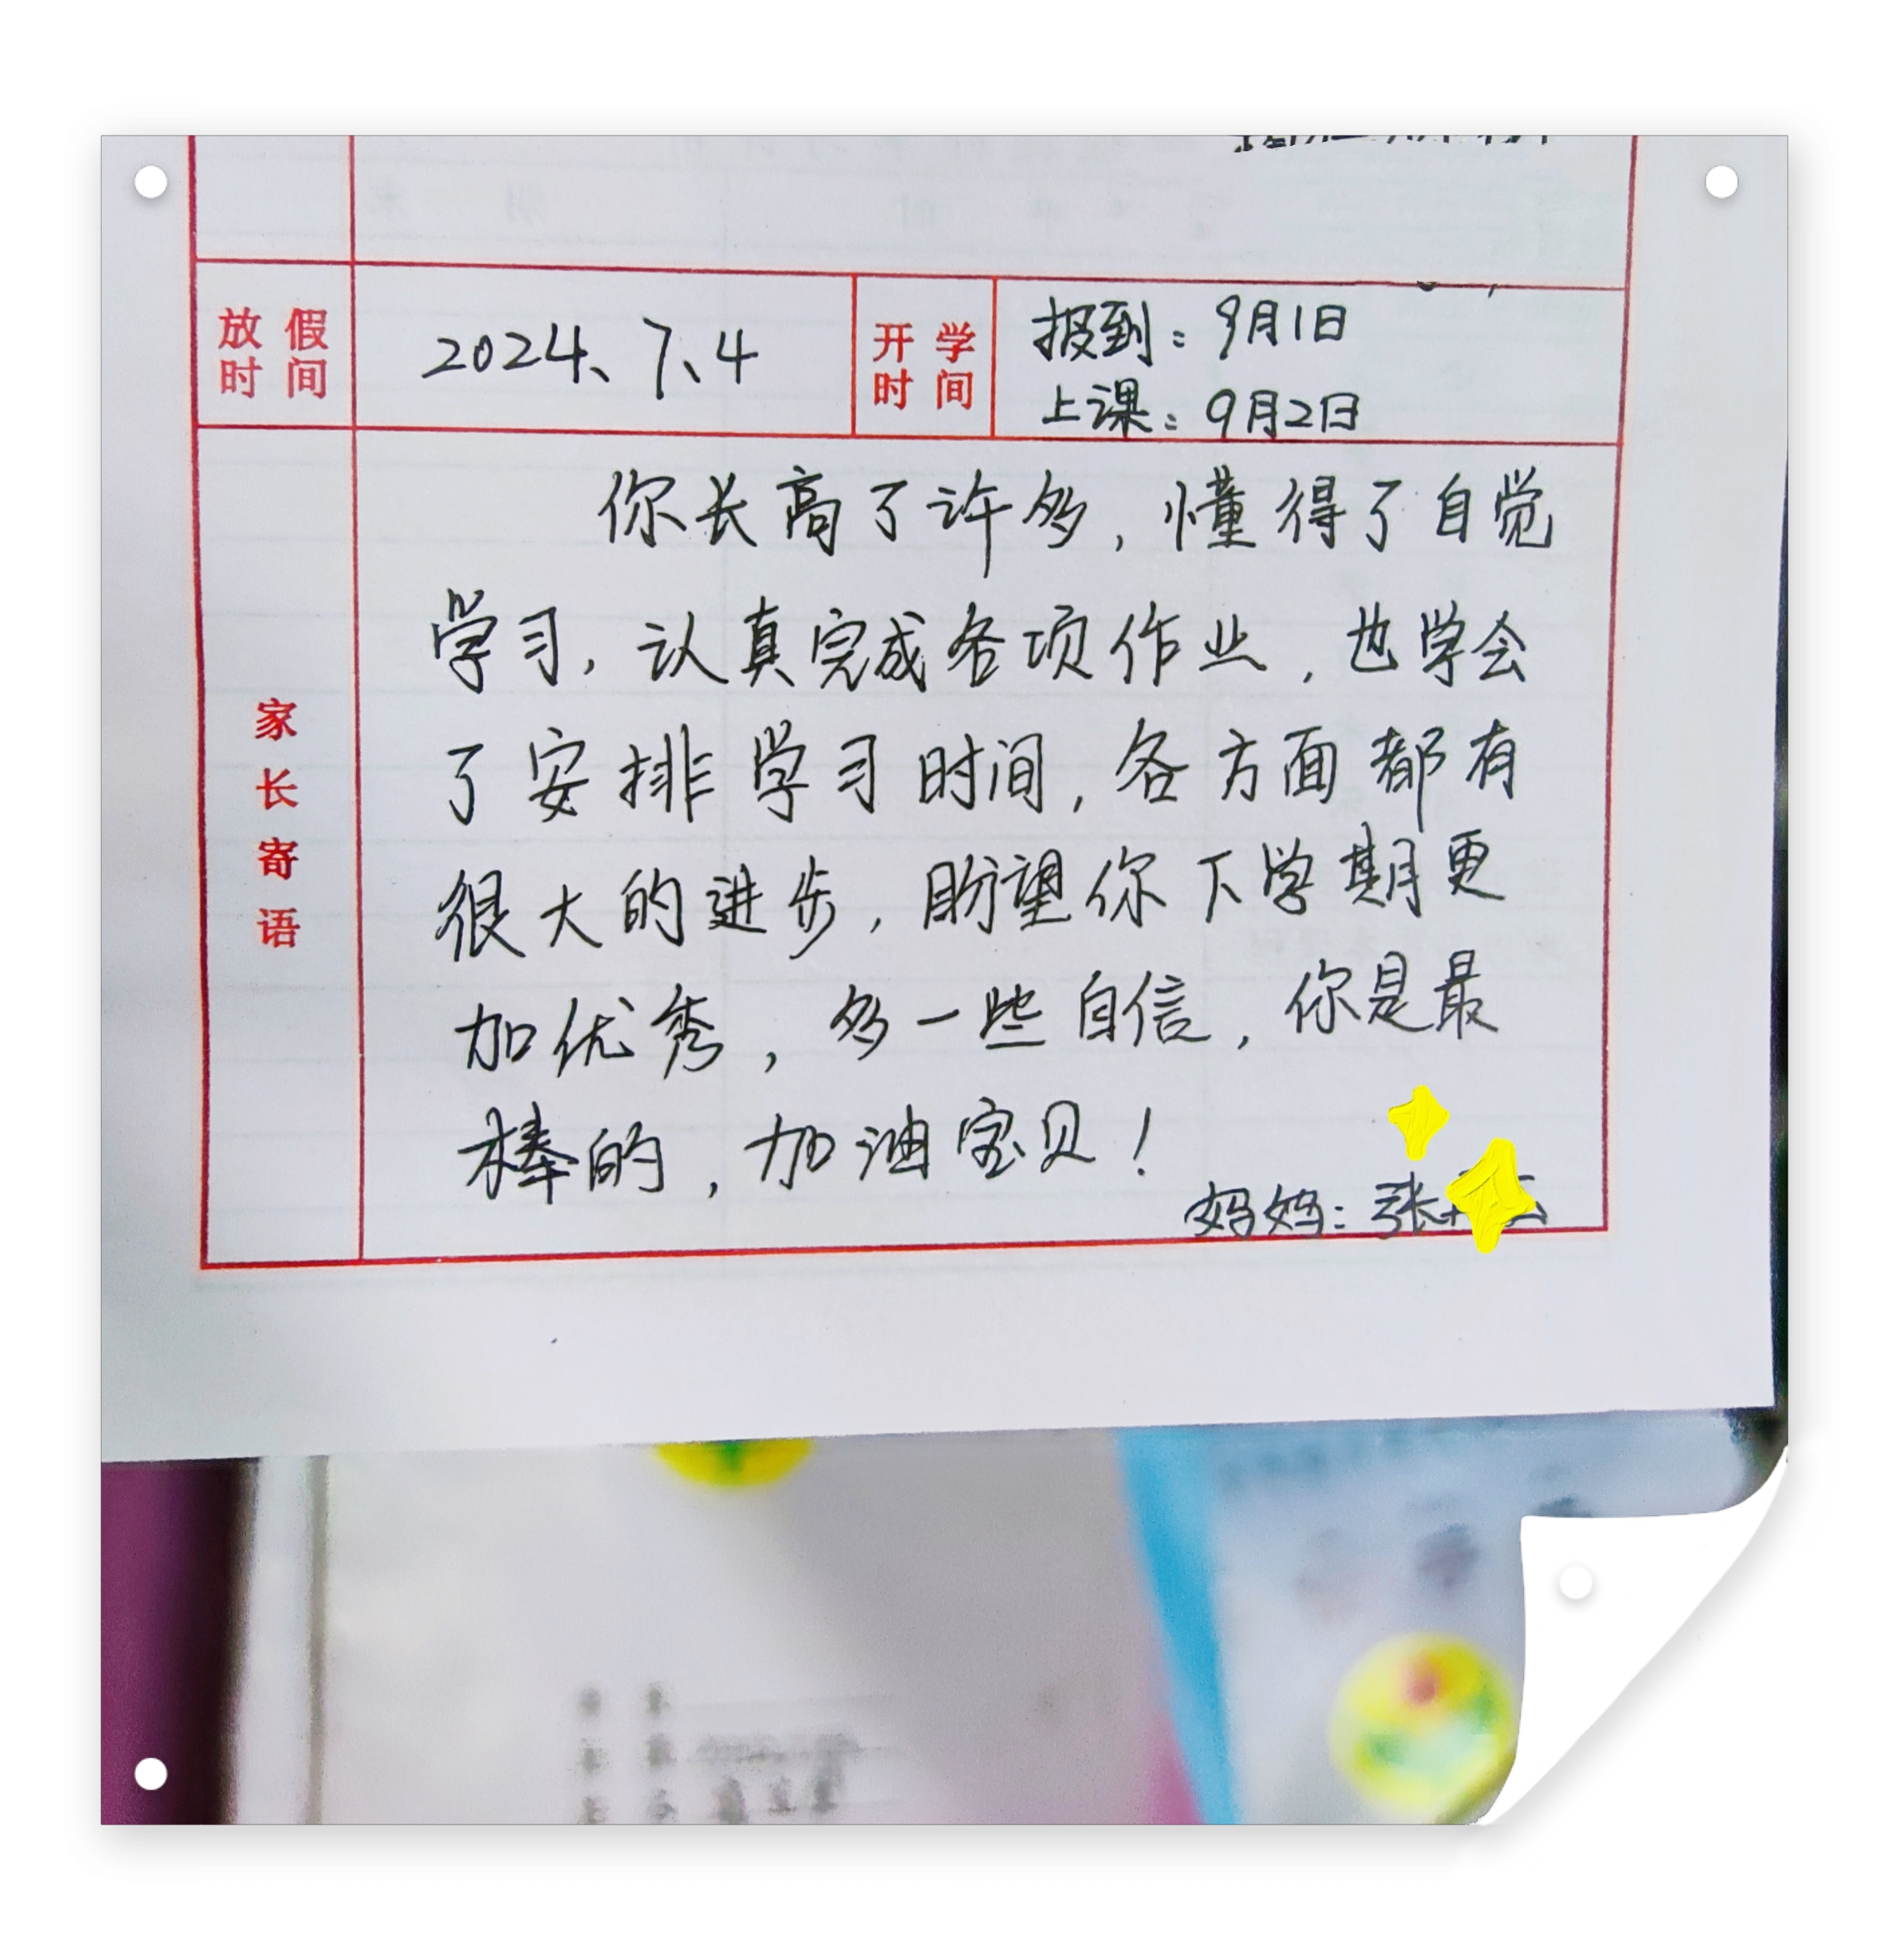 放假时间 2024、7、4 开学时间 报到：9月1日
上课：9月2日
家长寄语
你长高了许多，懂得了自觉
学习，认真完成各项作业，也学会
了安排学习时间，各方面都有
很大的进步，盼望你下学期更
加优秀，多一些自信，你是最
棒的，加油宝贝！
妈妈：张